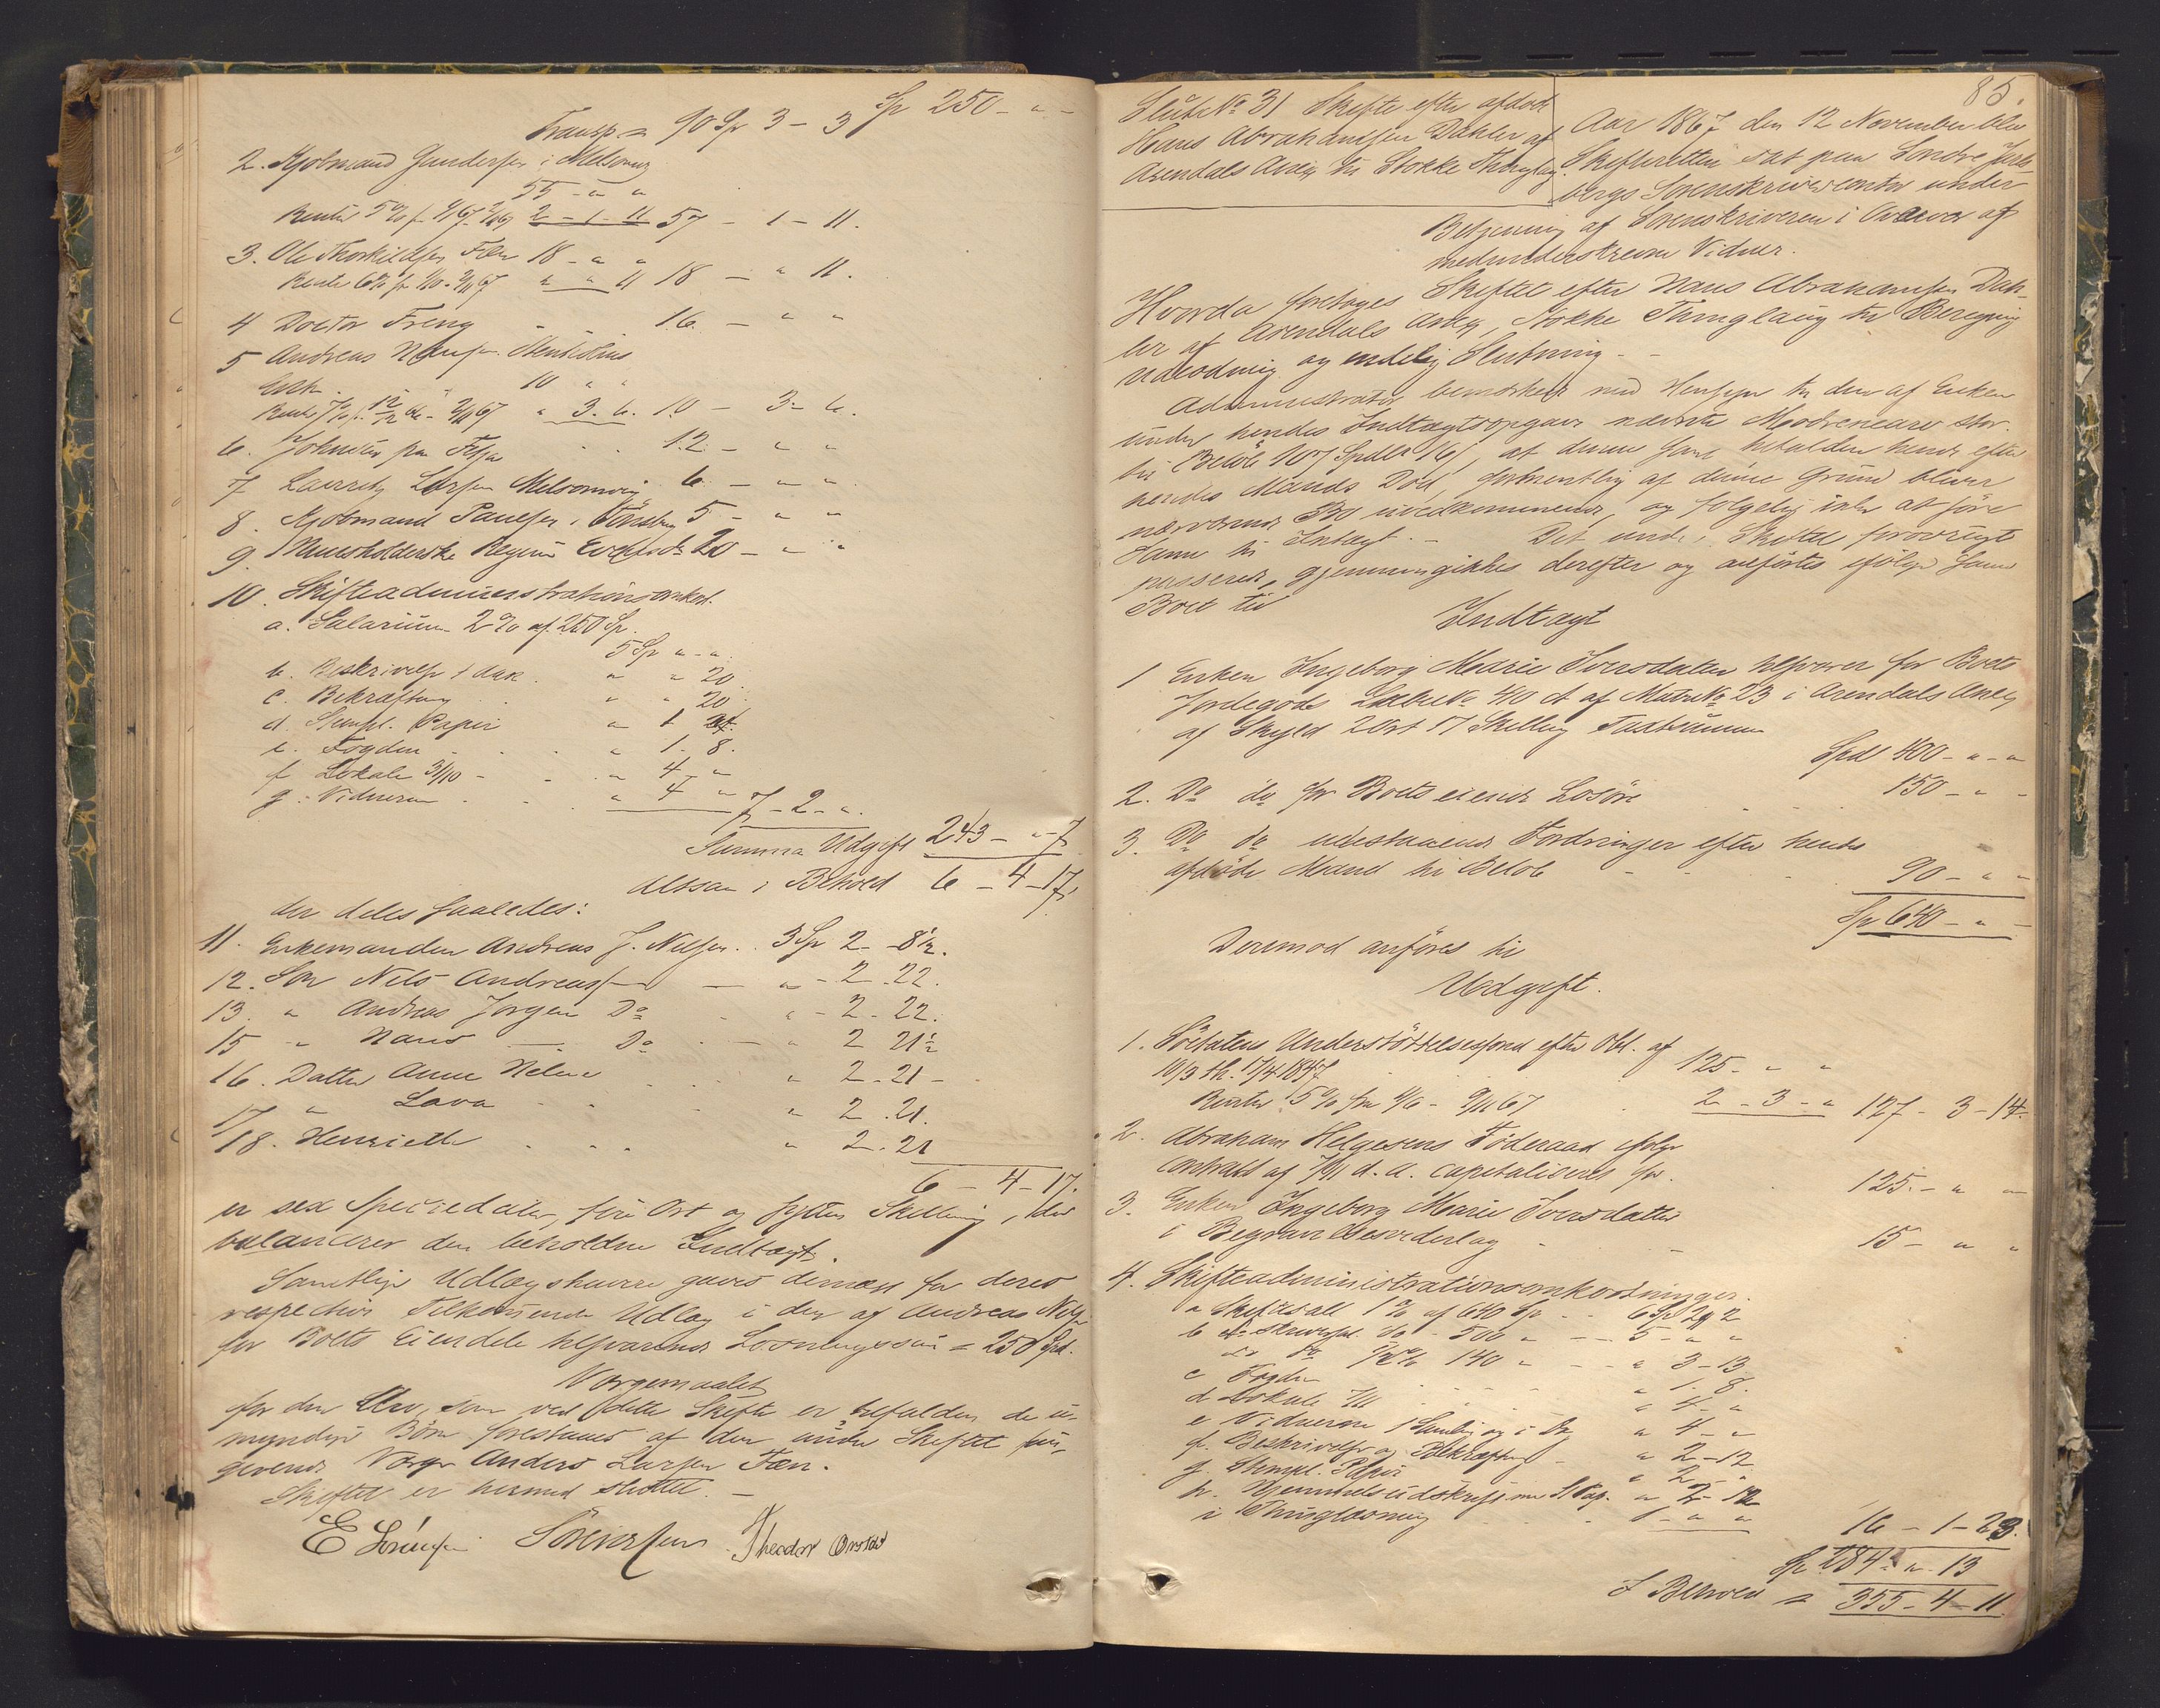 Transp = 90 Sp 3 - 3 Sp 250 - " -
2. Kjøbmand Gundersen i Melsomvig
55 - " "
Renter 5 % fr 2 - 1 - 11 57 - 1 - 11.
3. Ole Thorkildsen Fæn 18 - " "
Renter 6 % fr " " 11 18 - " 11.
4 Doctor Freng 16 - " "
5 Andreas Hansen Stenholms
Enke 10 " "
Rente 7 % f. 12/12 66 - 67 " 3. 6. 10 - 3 - 6.
6. Johnsen paa 12 - " "
7 Lauritz Larsen Melsomvig 6 - " "
8. Kjøbmand Paulsen i Tønsberg 5 - " "
9. Huusholderske Regine 20 - " "
10. Skifteadministrationsomkost.
a. Salarium 2 % af 250 Sp.
5 Sp " - "
b. Beskrivelse " " 20
c. Bekræftning " " 20
d. Stempl. Papir " 1
e. Fogden " 1. 8.
f Lokale 31/10 - " 4 "
g. Vidnerne " 4 " 7 - 2 - ".
Summa Udgift 243 - " - 7
Altsaa i Behold 6 - 4 - 17
der deles saaledes:
11. Enkemanden Andreas J. Nilsen 3 Sp 2 - 8½.
12. Søn Nils Andreas " - 2. 22.
13. " Andreas Jørgen Do " - 2 - 22.
15 " Hans Do " 2 21½
16. Datter Anne Helene " 2. 21 -
17 " Lava " 2. 21.
18. Henriette " 2. 21
6 - 4 - 17.
er sex Speciedaler, fire Ort og sytten Skilling, der
balancerer den beholdne Indtægt.
Samtlige Udlægshavere gaves dernæst for deres
respective Tilkommende Udlæg i den af Andreas Nils.
for Boets Eiendele tilsvarende Løsningssum = 250 Spd.
Værgemaalet
for den Arv, som ved dette Skifte er tilfalden de u-
myndige Børn forestaaes af den under Skiftet fun-
gerende Værge Anders Larsen Fæn.
Skiftet er hermed sluttet. -
E Sørensen Theodor
85.
Slutn No 31 Skifte efter afdøde
Hans Abrahamsen Dahler af
Arendals Anneg til Stokke Thinglag.
Aar 1867 den 12 November blev
Skifteretten sat paa Søndre Jarls-
bergs Sorenskrivercontor under
Betjening af Sorenskriveren i Overvær af
medunderskrevne Vidner.
Hvorda foretoges Skiftet efter Hans Abrahamsen Dah-
ler af Arendals Anneg, Stokke Thinglaug til Beregning
Udlodning og endelig Slutning. -
Administrator bemærked med Hensyn til den af Enken
under hendes Indtægtsopgave nævnte Mødrenearv stor.
til Beløb 107 Spdlr 16 ß, at denne først tilfalden hende efter
hendes Mands Død, formentlig af denne Grund bliver
nærværende Bo uvedkommende, og følgelig ikke at føre
samme til Indtægt. - Det under Skiftet forøvrigt
passerede gjennemgikkes derefter og anførtes ifølge samme
Boet til
Indtægt
1 Enken Ingeborg Marie Iversdatter tilsvarer for Boets
Jordegods Løbe No 40 d af Matr No 23 i Arendals Anneg
af Skyld 2 Ort 17 Skilling Taxtsummen
Spd 400 - " - "
2. Do do for Boets eiende Løsøre 150 - " -
3. Do do udestaaende Fordringer efter hendes
afdøde Mand til Beløb 90 - " "
Sp 640 - " -
Derimod anføres til
Udgift.
1. Understøttelsesfond efter Obl. af
10/3 th. 17/4 1847 125 - " "
Renter 5 % fra 2 - 3 - " 127 - 3 - 14.
2. Abraham Helgesens Føderaad ifølge
Contract af d. A. capitaliseret for 125 - " "
3. Enken Ingeborg Marie Iversdatter
i Begravelsesvederlag 15 - " "
4. Skifteadministrationsomkostninger.
a Skiftesall 1 % af 640 Sp 6 Sp 2
b do - 500 " 5 - " "
do 140 " " 3 - 13
c Fogden " 1. 8.
d Lokale " 4 - "
e Vidnerne " 4 - "
f. Beskrivelse og Bekræftning " 2 - 12
g. Stempl. Papir " 2 - "
h. Hjemmelsudskrift " 2 - 12
i Thinglæsning 1 - " " 16 - 1 - 23.
Sp 284 - " - 13
I Behold = 355 - 4 - 11